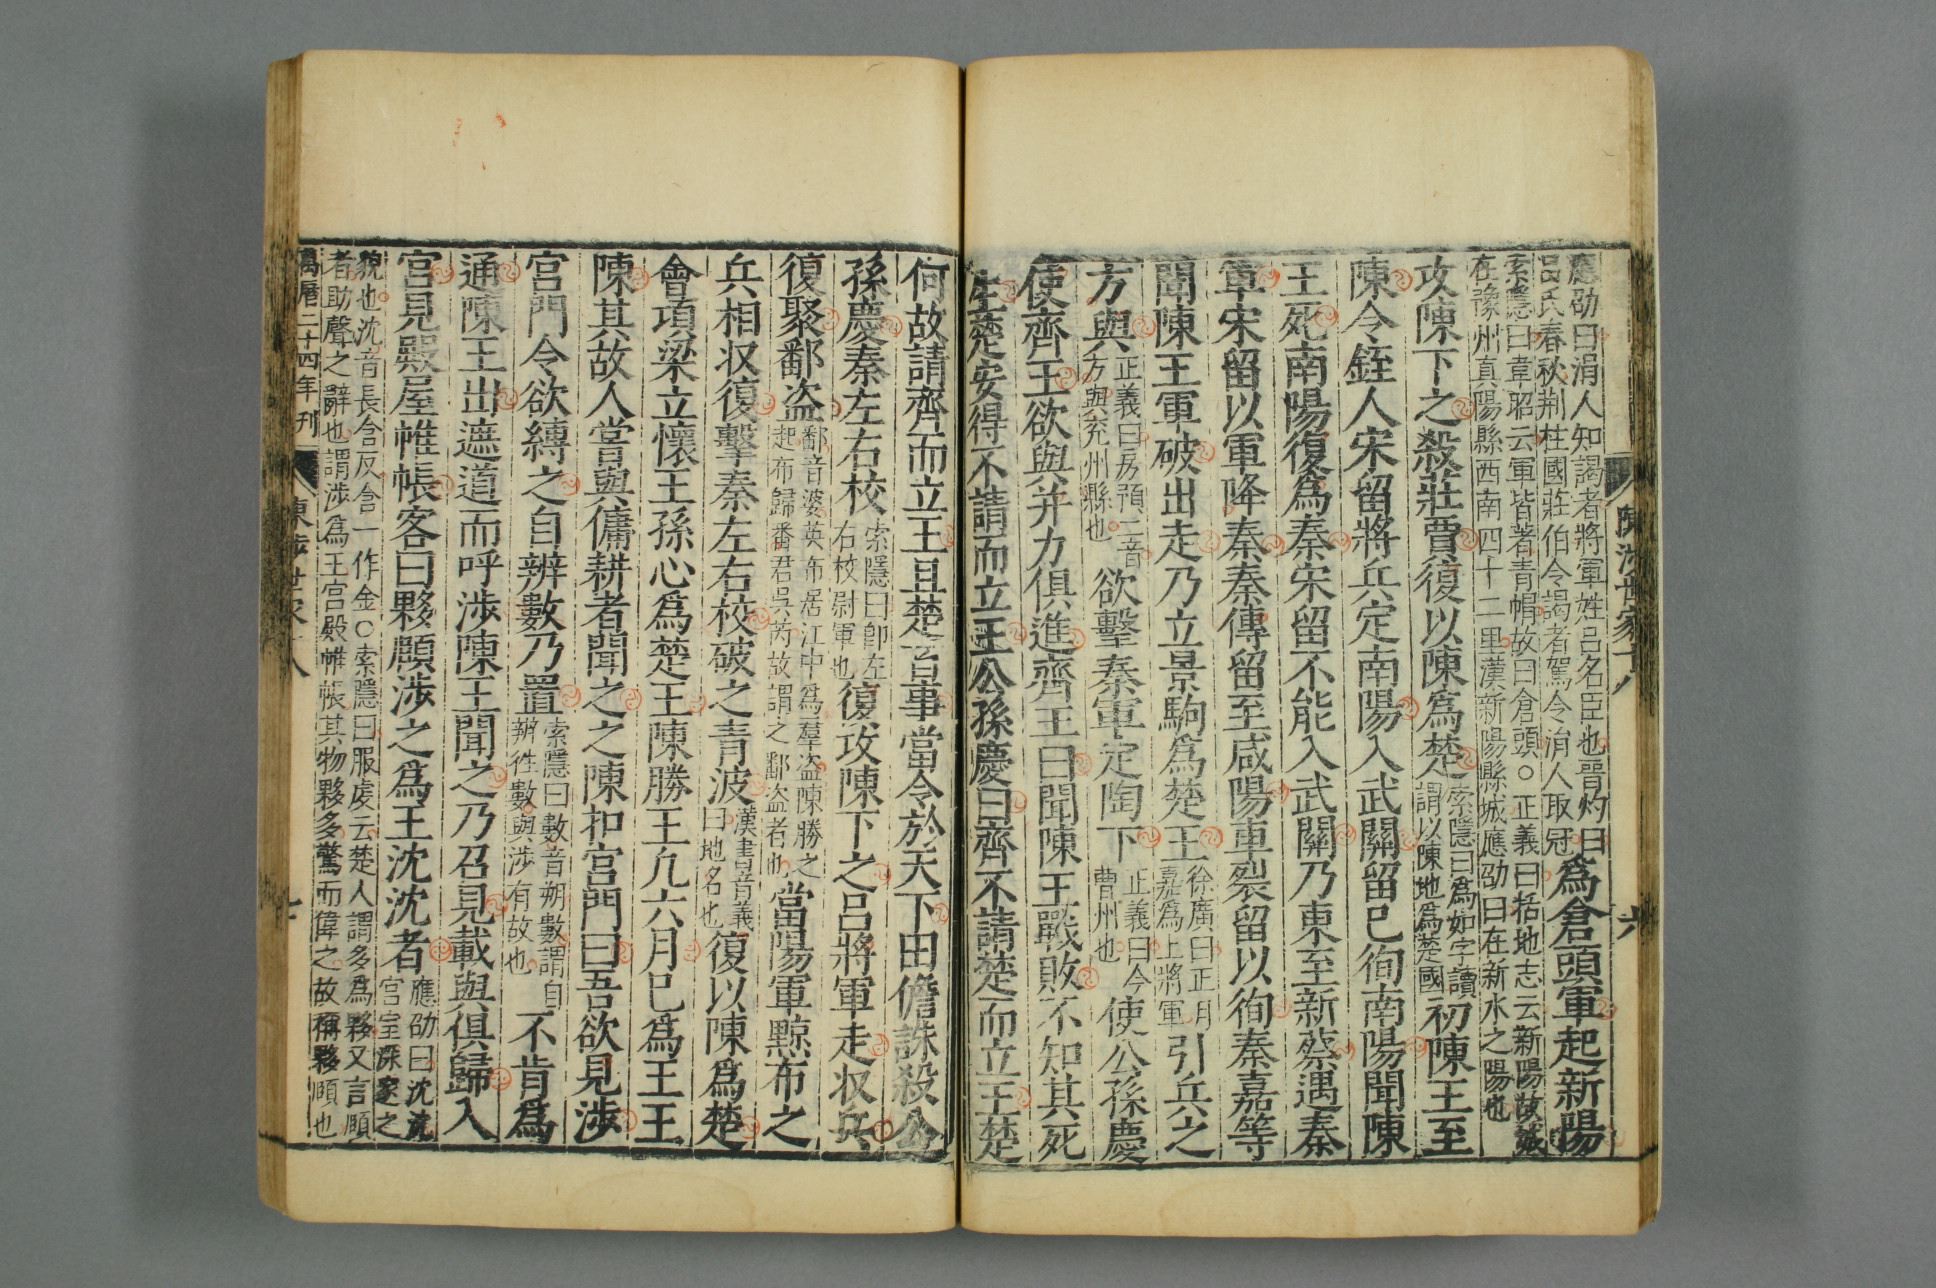 應劭曰涓人知謁者將軍姓呂名臣也晉灼曰
呂氏春秋荆柱國莊伯令謁者駕令涓人取冠
爲倉頭軍起新陽
索隱曰韋昭云軍皆著青帽故曰倉頭○正義曰括地志云新陽故城
在豫州真陽縣西南四十二里漢新陽縣城應劭曰在新水之陽也
攻陳下之殺莊賈復以陳爲楚
索隱曰爲如字讀
謂以陳地爲楚國
初陳王至
陳令銍人宋留將兵定南陽入武關留已徇南陽聞陳
王死南陽復爲秦宋留不能入武關乃東至新蔡遇秦
軍宋留以軍降秦秦傳留至咸陽車裂留以徇秦嘉等
聞陳王軍破出走乃立景駒爲楚王
徐廣曰正月
嘉爲上將軍
引兵之
方與
正義曰房預二音
方與兖州縣也
欲擊秦軍定陶下
正義曰今
曹州也
使公孫慶
使齊王欲與并力俱進齊王曰聞陳王戰敗不知其死
生楚安得不請而立王公孫慶曰齊不請楚而立王楚
何故請齊而立王且楚首事當令於天下田儋誅殺公
孫慶秦左右校
索隱曰卽左
右校尉軍也
復攻陳下之呂將軍走收兵
復聚鄱盜
鄱音婆英布居江中爲羣盜陳勝之
起布歸番君吳芮故謂之鄱盜者也
當陽軍黥布之
兵相收復擊秦左右校破之青波
漢書音義
曰地名也
復以陳爲楚
會項梁立懷王孫心爲楚王陳勝王凡六月已爲王王
陳其故人嘗與傭耕者聞之之陳扣宮門曰吾欲見涉
宮門令欲縛之自辨數乃置
索隱曰數音朔數謂自
辨徃數與涉有故也
不肯爲
通陳王出遮道而呼涉陳王聞之乃召見載與俱歸入
宮見殿屋帷帳客曰夥頤涉之爲王沈沈者
應劭曰沈沈
宮室深邃之
貌也沈音長含反含一作金○索隱曰服虔云楚人謂多爲夥又言頤
者助聲之辭也謂涉爲王宮殿帷帳其物夥多驚而偉之故稱夥頤也
陳涉世家十八
六
萬曆二十四年刊
陳涉世家十八
七